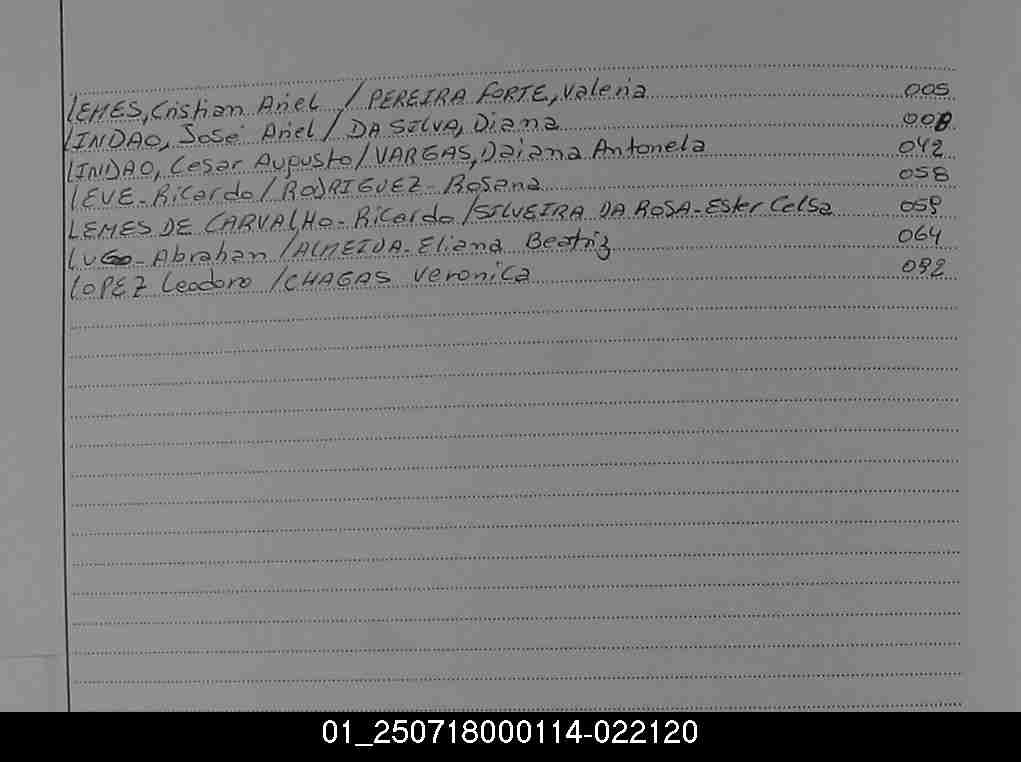 LEMES, Cristian Ariel / PEREIRA FORTE, Valeria 005
LINDAO, José Ariel / DA SILVA, Diana 008
LINDAO, Cesar Augusto / VARGAS, Daiana Antonela 042
LEVE - Ricardo / RODRIGUEZ - Rosana 058
LEMES DE CARVALHO - Ricardo / SILVEIRA DA ROSA - Ester Celsa 059
LUGO - Abrahan / ALMEIDA - Eliana Beatriz 064
LOPEZ Leodoro / CHAGAS Veronica 092
01_250718000114-022120